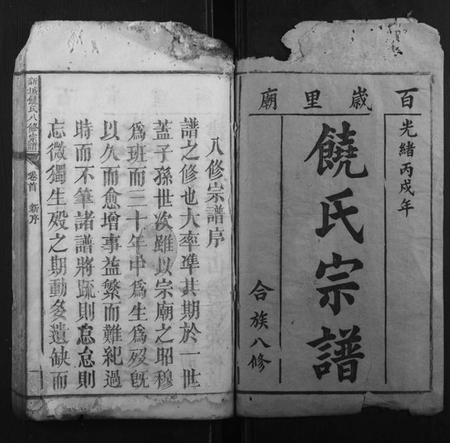 百歲里廟
光緒丙戌年
饒氏宗譜
合族八修
八修宗譜序
譜之修也大率準其期於一世
蓋子孫世次雖以宗廟之昭穆
為班而二十年中為生為歿旣
以久而愈增事益繁而難紀過
時而不筆諸譜將疏則怠怠則
忘微獨生歿之期動多遺缺而
新城饒氏八修宗譜
卷首
新序